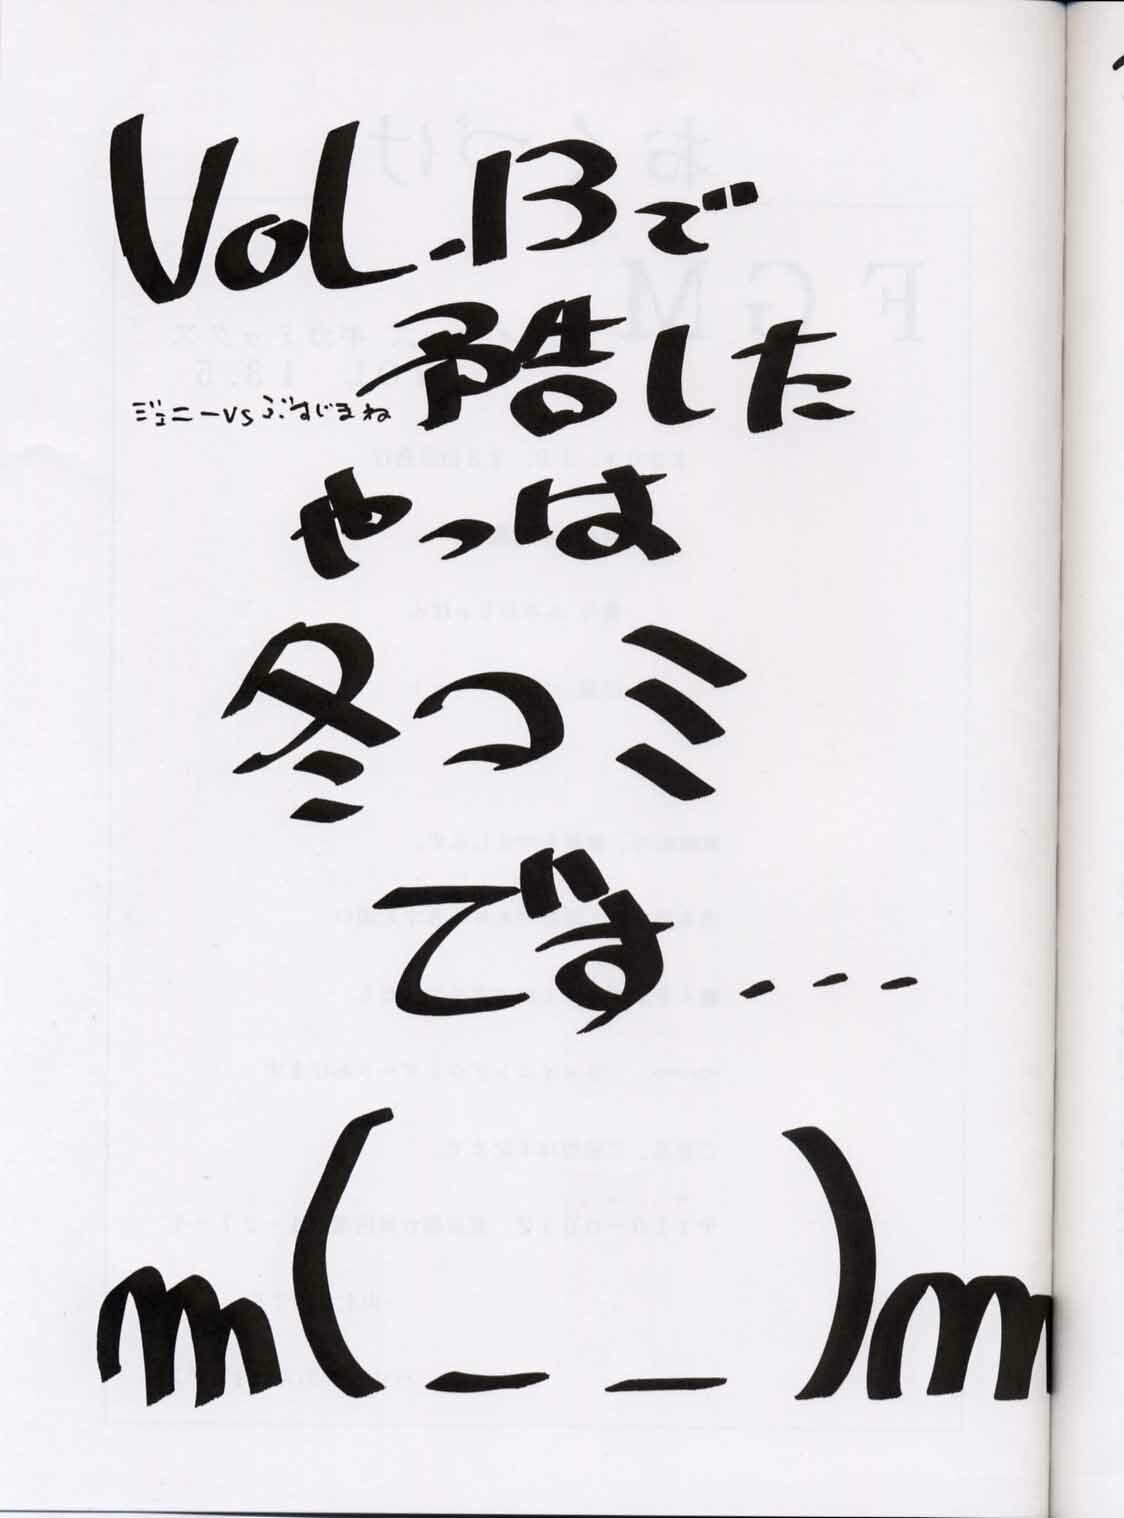 VOL.13で
予告した
ジェニーVSぶすじまね
やっは
冬コミ
です...
m(_ _)m